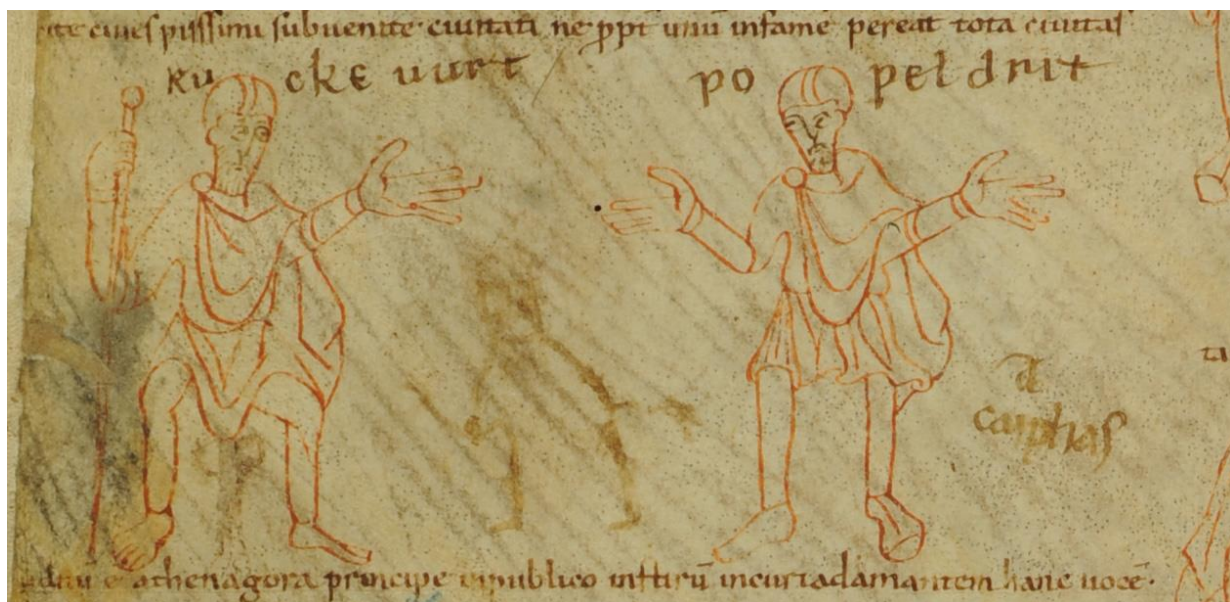 cives piissimi subvenite civitati ne ꝓpt̄ unū infamē pereat tota civitas
ku cke vurt po pel drit
caiphas
ē athenagora principe inpublico in curia damantem hanc vocē.